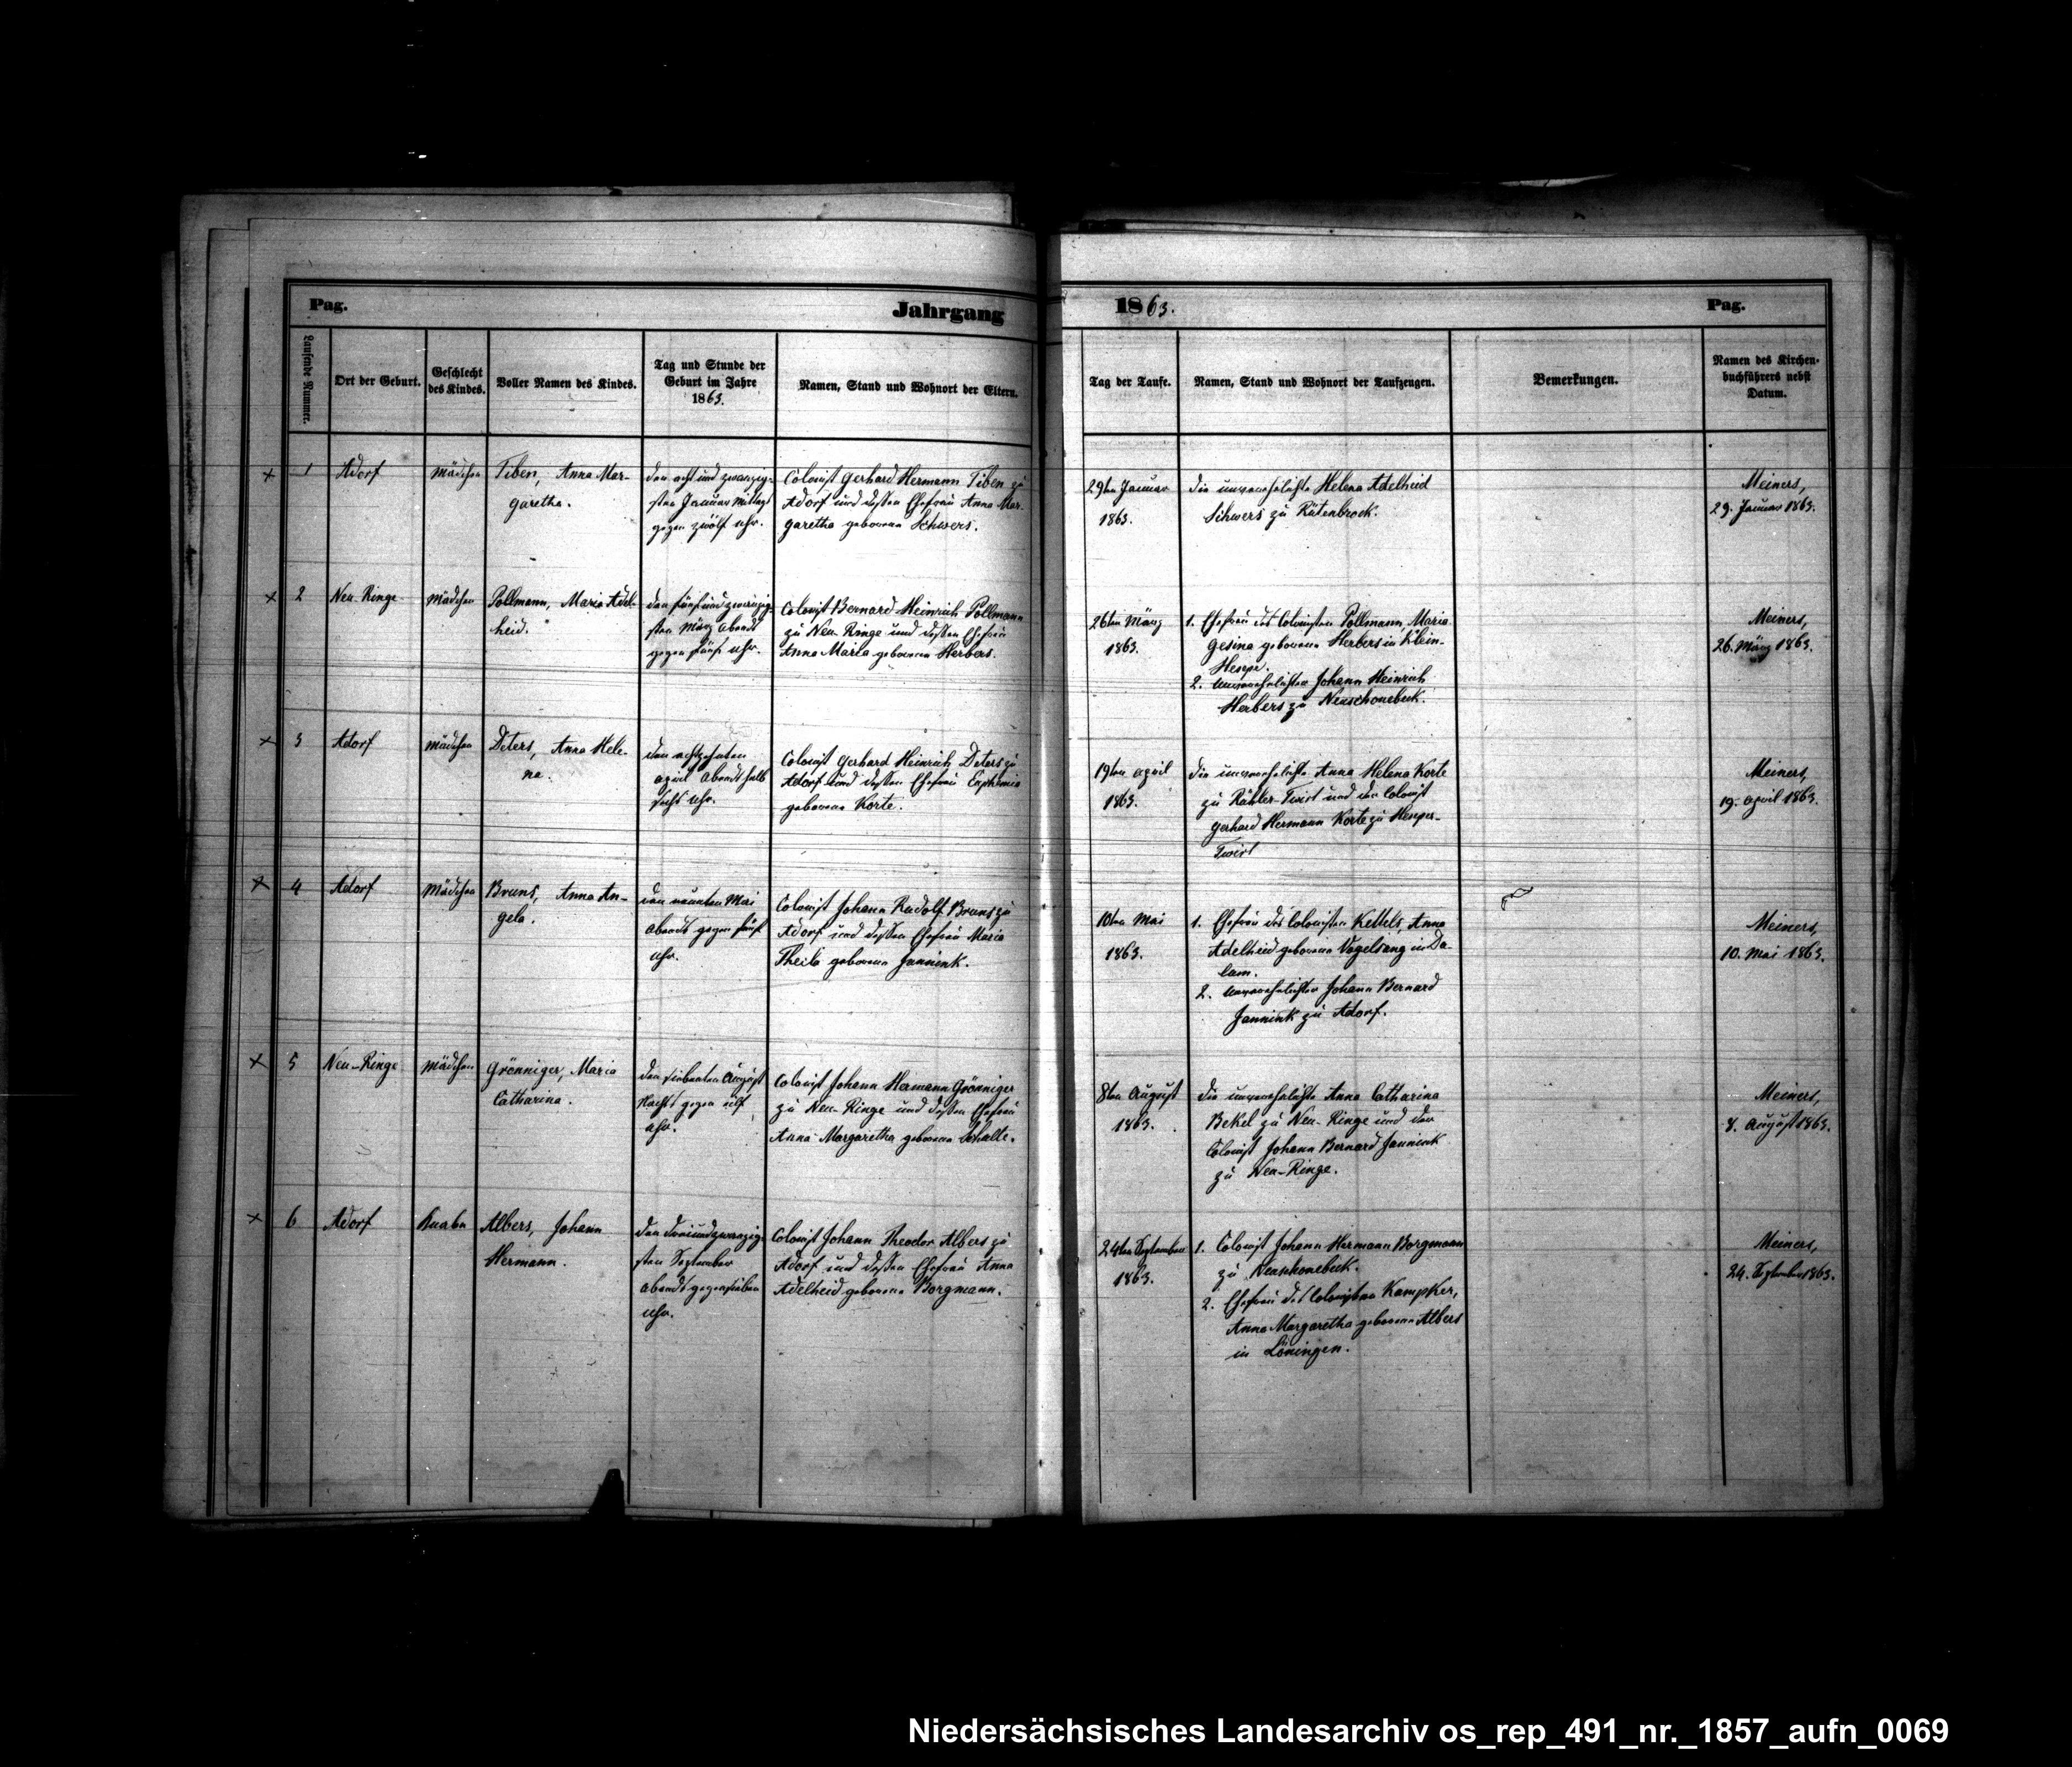 Pag.
Jahrgang
1863.
Pag.
Laufende Nummer.
Ort der Geburt.
Geschlecht
des Kindes.
Voller Namen des Kindes.
Tag und Stunde der
Geburt im Jahre
1863.
Namen, Stand und Wohnort der Eltern.
Tag der Taufe.
Namen, Stand und Wohnort der Taufzeugen.
Bemerkungen.
Namen des Kirchen-
buchführers nebst
Datum.
× 1
Adorf
Mädchen
Tiben, Anna Mar-
garetha.
den acht und zwanzig-
sten Januar Mittags
gegen zwölf Uhr.
Colonist Gerhard Hermann Tiben zu
Adorf und dessen Ehefrau Anna Mar-
garetha geborene Schwers.
29ten Januar
1863.
die unverehelichte Helena Adelheid
Schwers zu Rütenbrock.
Meiners,
29. Januar 1863.
× 2
Neu-Ringe
Mädchen
Pollmann, Maria Adel-
heid.
den fünf und zwanzig-
sten März Abends
gegen fünf Uhr.
Colonist Bernard Heinrich Pollmann
zu Neu-Ringe und dessen Ehefrau
Anna Maria geborene Herbers.
26ten März
1863.
1. Ehefrau des Colonisten Pollmann Maria
Gesina geborene Herbers in Klein-
Hesepe.
2. Unverehelichter Johann Heinrich
Herbers zu Neuschonebeck.
Meiners,
26. März 1863.
× 3
Adorf
Mädchen
Deters, Anna Hele-
na.
den achtzehnten
April Abends halb
sechs Uhr.
Colonist Gerhard Heinrich Deters zu
Adorf und dessen Ehefrau Euphemia
geborene Korte.
19ten April
1863.
die unverehelichte Anna Helena Korte
zu Rühler-Twist und der Colonist
Gerhard Hermann Korte zu Heseper-
Twist
Meiners,
19. April 1863.
× 4
Adorf
Mädchen
Bruns, Anna An-
gela.
den neunten Mai
Abends gegen fünf
Uhr.
Colonist Johann Rudolf Bruns zu
Adorf und dessen Ehefrau Maria
Theila geborene Jannink.
10ten Mai
1863.
1. Ehefrau des Colonisten Kettels, Anna
Adelheid geborene Vogelsang in Da-
lum.
2. Unverehelichter Johann Bernard
Jannink zu Adorf.
Meiners,
10. Mai 1863.
× 5
Neu-Ringe
Mädchen
Grönniger, Maria
Catharina.
den siebenten August
Nachts gegen elf
Uhr.
Colonist Johann Hermann Grönniger
zu Neu-Ringe und dessen Ehefrau
Anna Margaretha geborene Schulte.
8ten August
1863.
die unverehelichte Anna Catharina
Bekel zu Neu-Ringe und der
Colonist Johann Bernard Jannink
zu Neu-Ringe.
Meiners,
8. August 1863.
× 6
Adorf
Knabe
Albers, Johann
Hermann.
den dreiundzwanzig-
sten September
Abends gegen sieben
Uhr.
Colonist Johann Theodor Albers zu
Adorf und dessen Ehefrau Anna
Adelheid geborene Borgmann.
24ten September
1863.
1. Colonist Johann Hermann Borgmann
zu Neuschonebeck.
2. Ehefrau des Colonisten Kampker,
Anna Margaretha geborene Albers
in Löningen.
Meiners,
24. September 1863.
Niedersächsisches Landesarchiv os_rep_491_nr._1857_aufn_0069